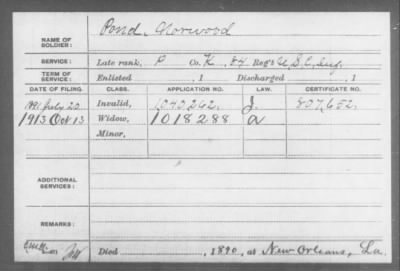 NAME OF SOLDIER: Pond, Norwood
SERVICE: Late rank, P Co. K, 84 Reg't U.S.C. Inf.
TERM OF SERVICE: Enlisted , 1 Discharged , 1
DATE OF FILING. CLASS. APPLICATION NO. LAW. CERTIFICATE NO.
1891 July 20 Invalid, 1040262. J. 807,652.
1913 Oct 13 Widow, 1018288 a
Minor,
ADDITIONAL SERVICES:
REMARKS:
Died , 1890, at New Orleans, La.